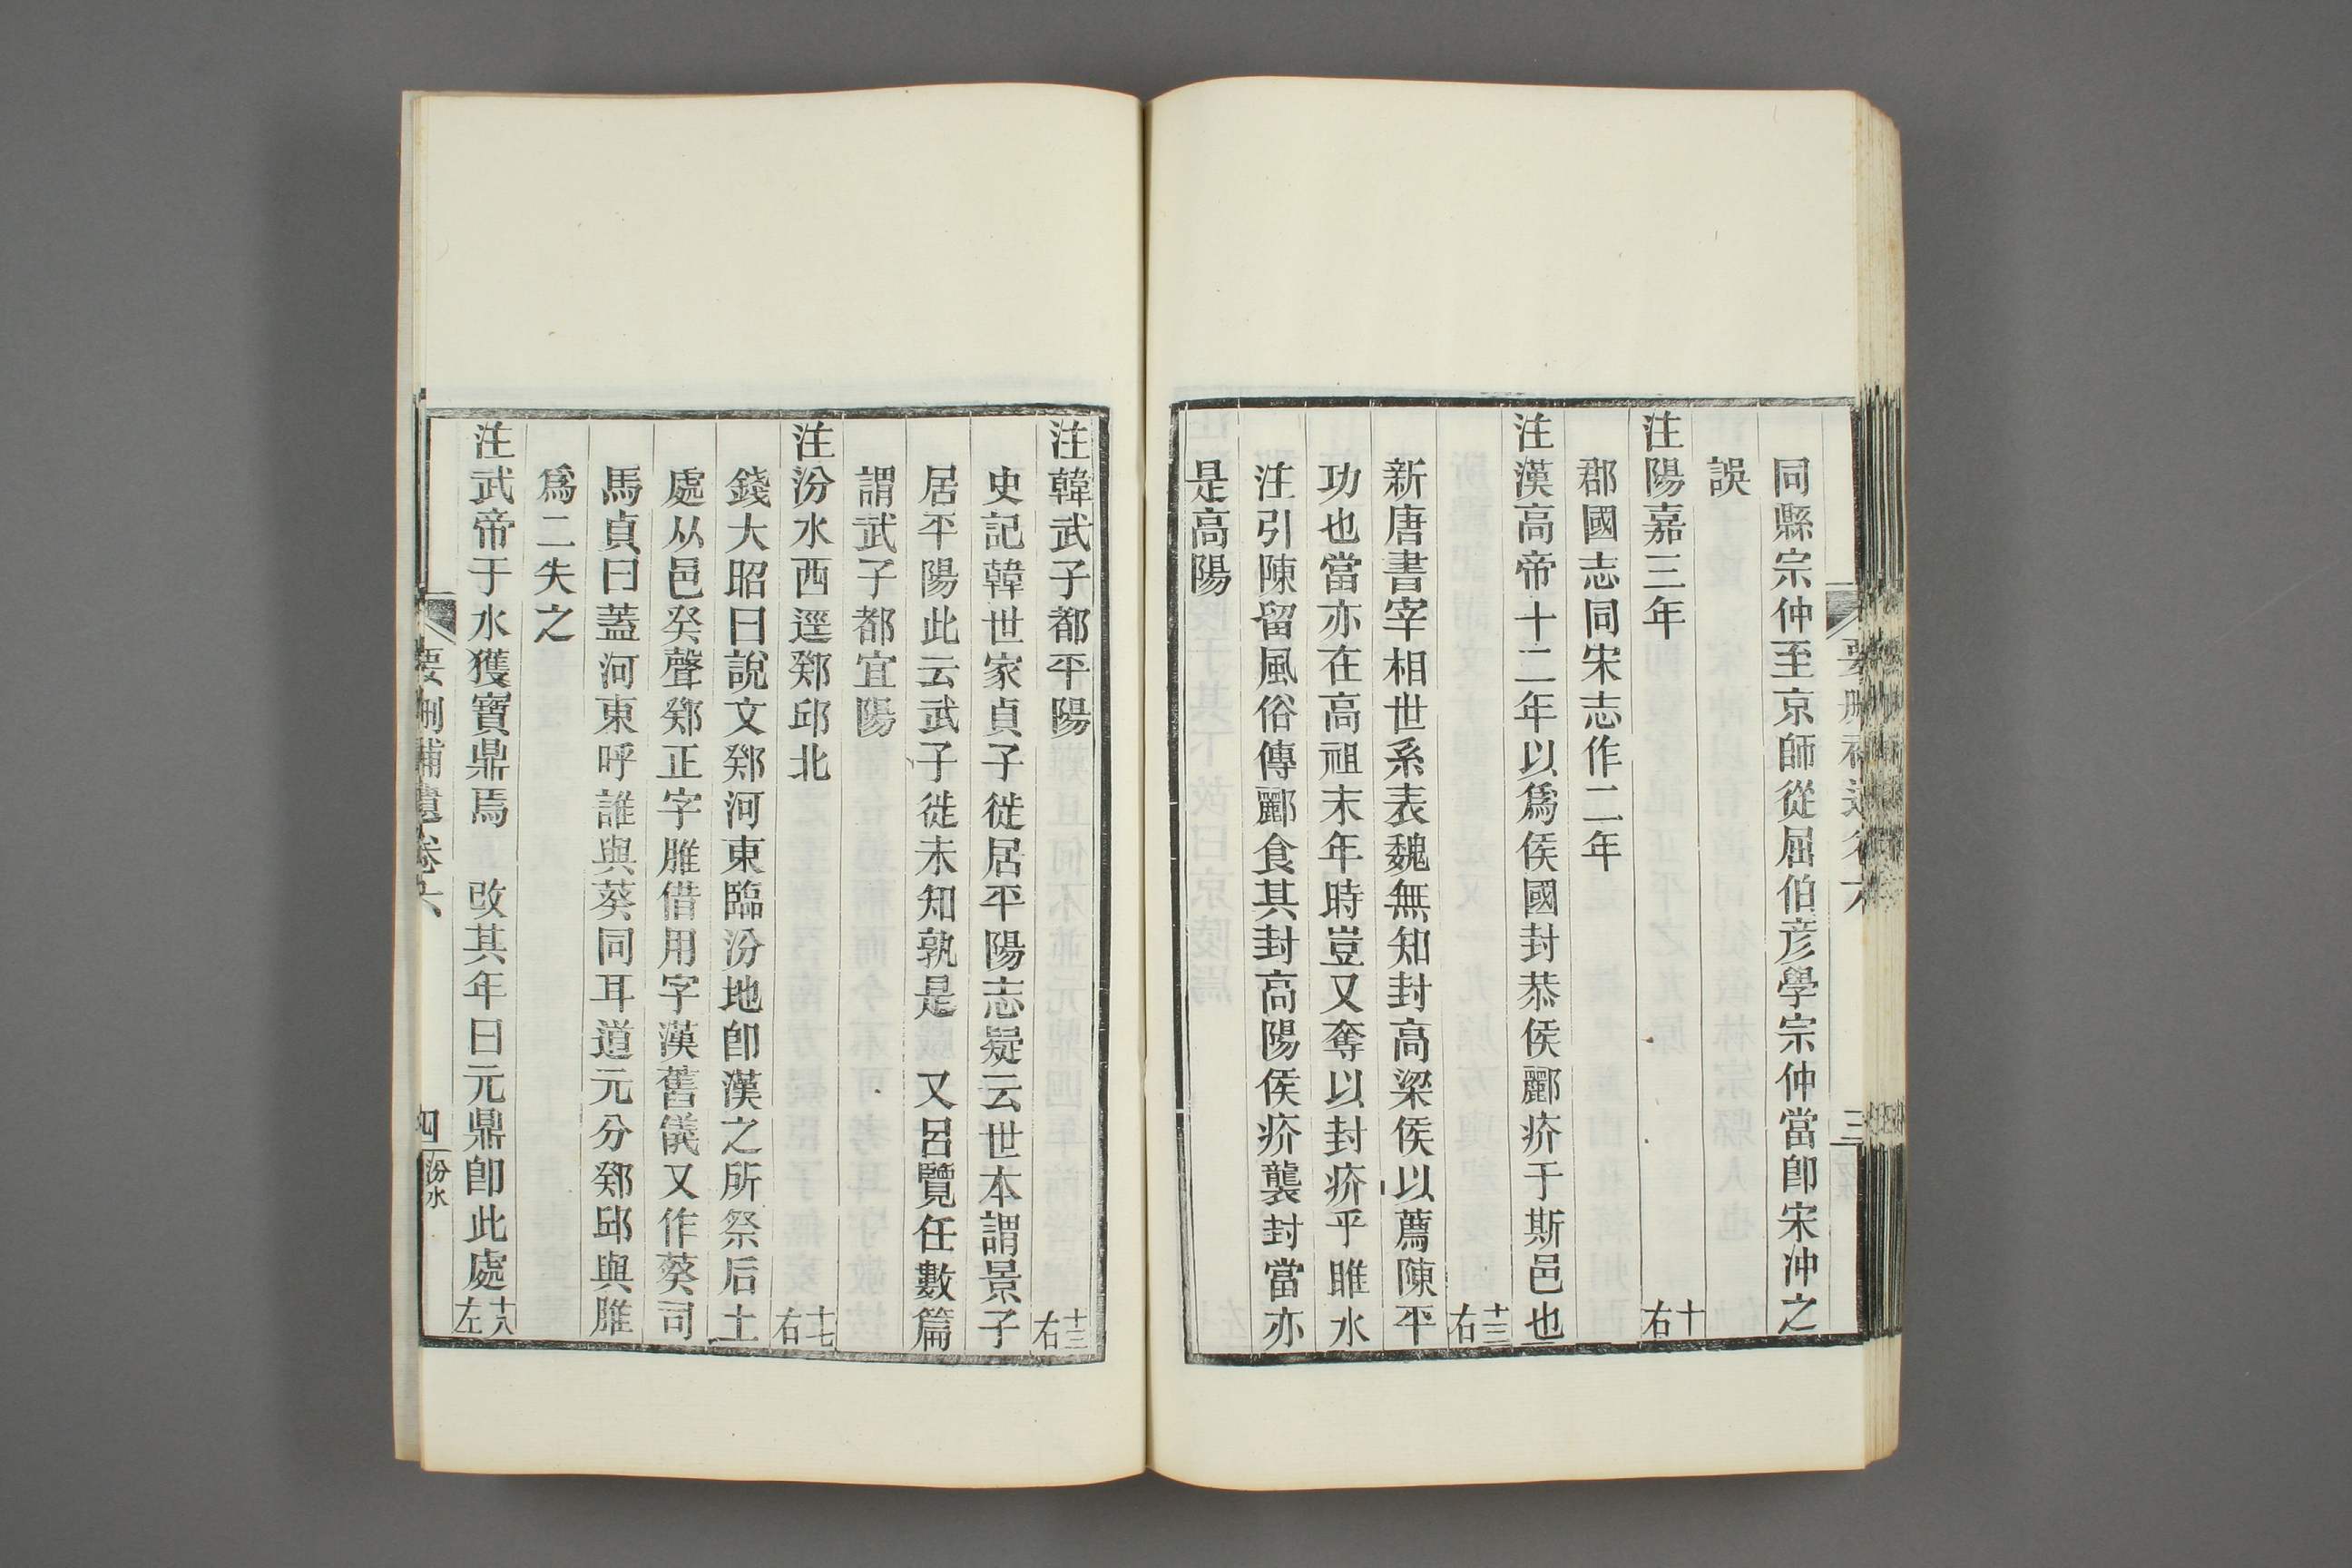 同縣宗仲至京師從屈伯彥學宗仲當卽宋沖之
誤
注陽嘉三年 十右
郡國志同宋志作二年
注漢高帝十二年以爲侯國封恭侯酈疥于斯邑也
十三右
新唐書宰相世系表魏無知封高梁侯以薦陳平
功也當亦在高祖末年時豈又奪以封疥乎睢水
注引陳留風俗傳酈食其封高陽侯疥襲封當亦
是高陽
注韓武子都平陽 十三右
史記韓世家貞子徙居平陽志疑云世本謂景子
居平陽此云武子徙未知孰是 又呂覽任數篇
謂武子都宜陽
注汾水西逕鄈邱北 十七右
錢大昭曰說文鄈河東臨汾地卽漢之所祭后土
處从邑癸聲鄈正字脽借用字漢舊儀又作葵司
馬貞曰蓋河東呼誰與葵同耳道元分鄈邱與脽
爲二失之
注武帝于水獲寶鼎焉 改其年曰元鼎卽此處 十八左
要刪補遺卷六
四
汾水